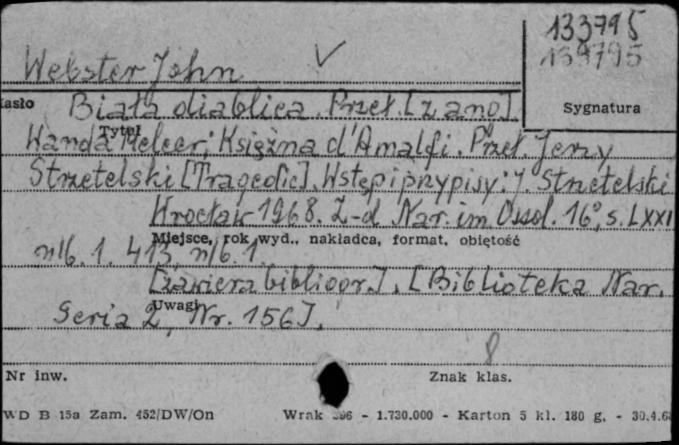 133795
139795
Webster John
Hasło Biała diablica. Przeł. [z ang].
Sygnatura
Tytuł
Wanda Melcer; Księżna d'Amalfi. Przeł. Jerzy
Strzetelski [Tragedie]. Wstęp i przypisy: J. Strzetelski
Wrocław 1968. Z-d Nar. im. Ossol. 16°, s. LXXI
Miejsce, rok wyd., nakładca, format, objętość
nlb. 1. 413, nlb. 1.
[zawiera bibliogr.]. [Biblioteka Nar.
Uwagi
Seria 2, Nr. 156].
Nr inw.
Znak klas.
WD B 15a Zam. 452/DW/On Wrak 396 - 1.730.000 - Karton 5 kl. 180 g. - 30.4.68